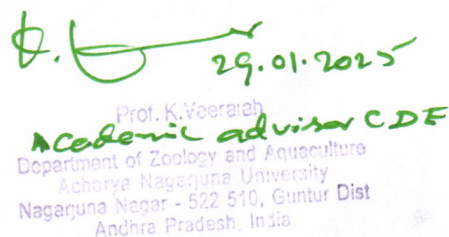 29.01.2025
Prof. K.Veeraiah
Academic advisor CDE
Department of Zoology and Aquaculture
Acharya Nagarjuna University
Nagarjuna Nagar - 522 510, Guntur Dist
Andhra Pradesh, India